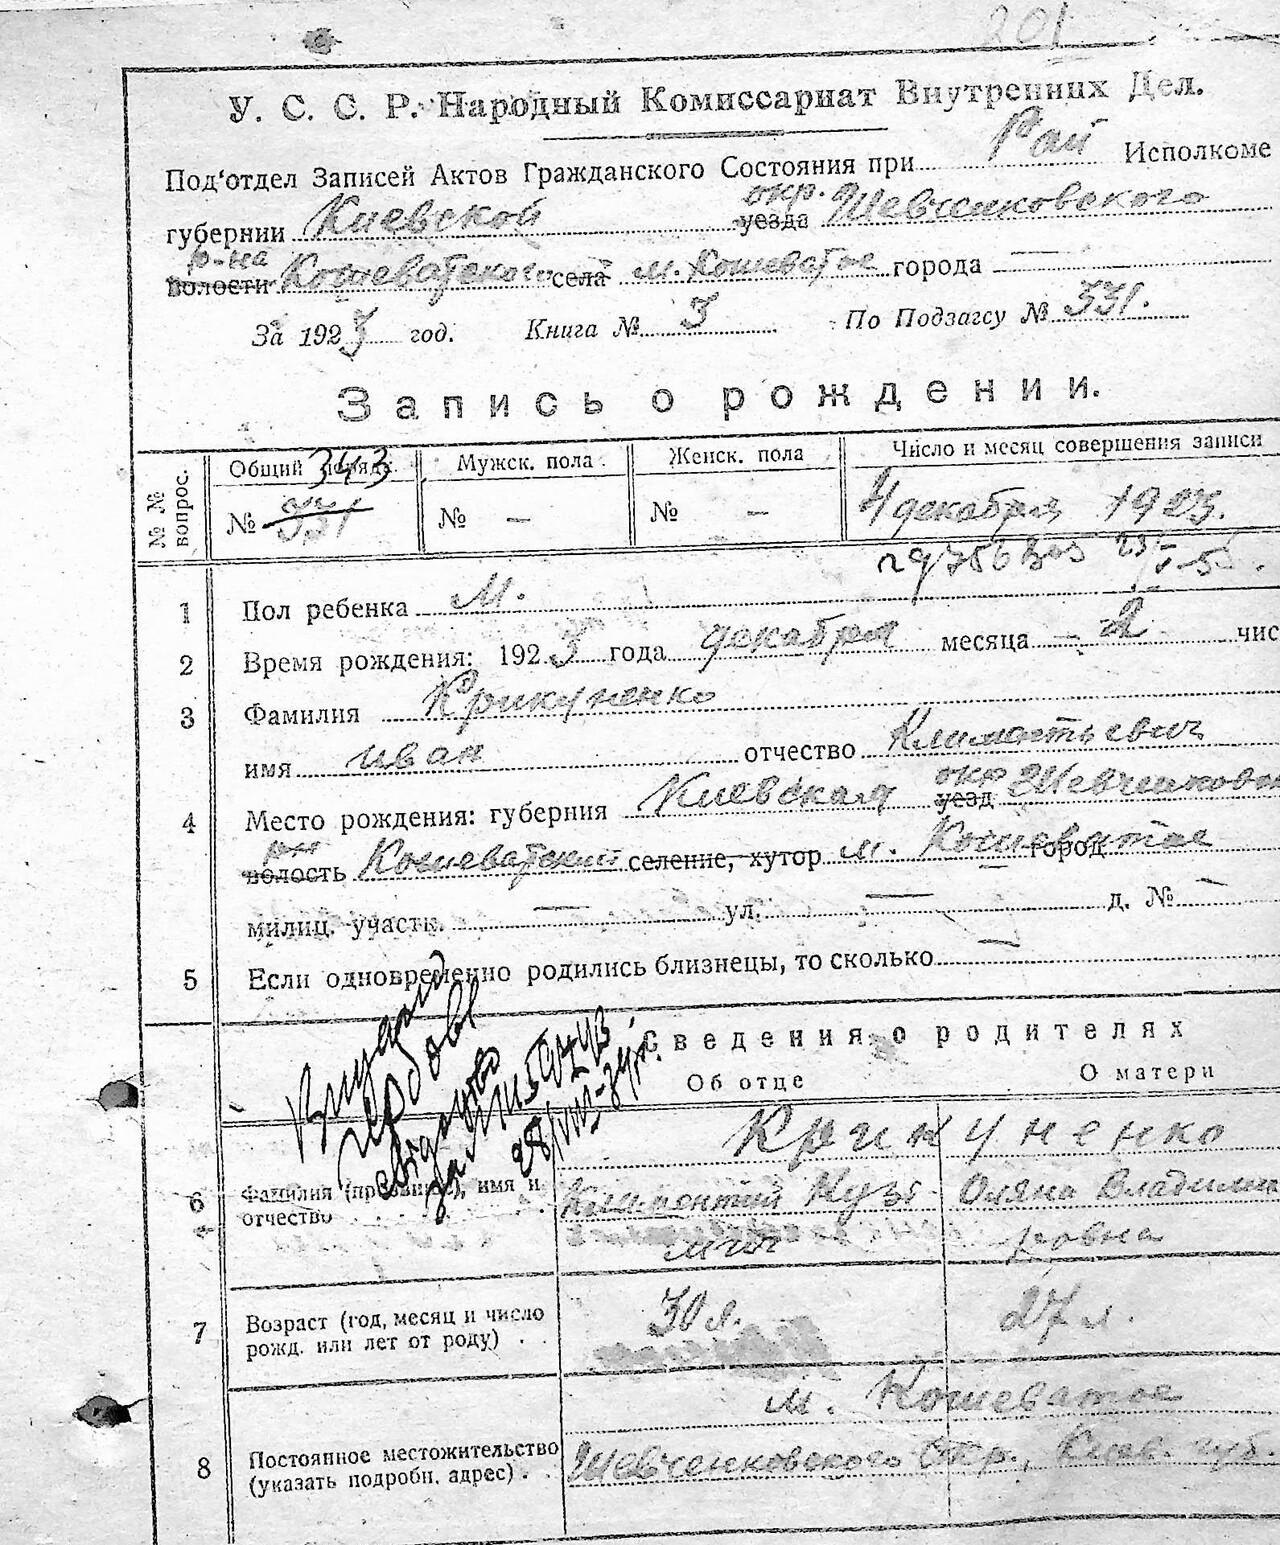 201
У. С. С. Р. Народный Комиссариат Внутренних Дел.
Под'отдел Записей Актов Гражданского Состояния при Рай Исполкоме
губернии Киевской окр. уезда Шевченковского
р-на волости Кошеватского села м. Кошеватое города —
За 1923 год. Книга № 3 По Подзагсу № 331.
Запись о рождении.
№ № вопрос. Общий порядк. 343 Мужск. пола Женск. пола Число и месяц совершения записи
№ 331 № — № — 4 декабря 1923.
1 Пол ребенка М.
2 Время рождения: 1923 года декабря месяца — 2 чис
3 Фамилия Крикуненко
имя иван отчество Климентьевич
4 Место рождения: губерния Киевская окр уезд Шевченковск
рн волость Кошеватский селение, хутор м. Кошеватое город —
милиц. участк. — ул. — д. № —
5 Если одновременно родились близнецы, то сколько —
Сведения о родителях
Об отце О матери
Крикуненко
6 Фамилия (прозвище), имя и отчество Климентий Кузь Оляна Владими
мич ровна
7 Возраст (год, месяц и число рожд. или лет от роду) . . 30 л. 27 л.
м. Кошеватое
8 Постоянное местожительство (указать подробн. адрес) . . Шевченковского Окр., Киев. губ.